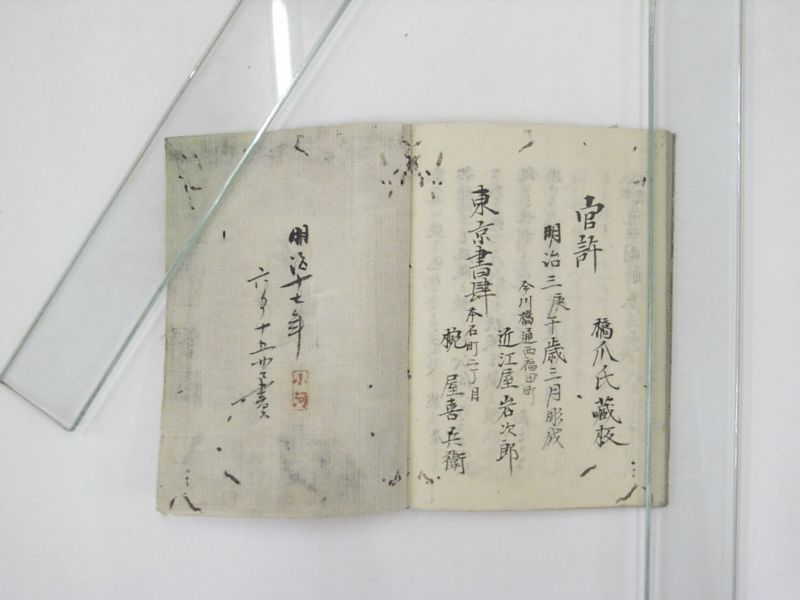 橋爪氏藏板
官許
明治三庚午歳三月彫成
今川橋通西福田町
近江屋岩次郎
東京書肆
本石町二丁目
椀屋喜兵衛
明治十七年
小河
六月十五日